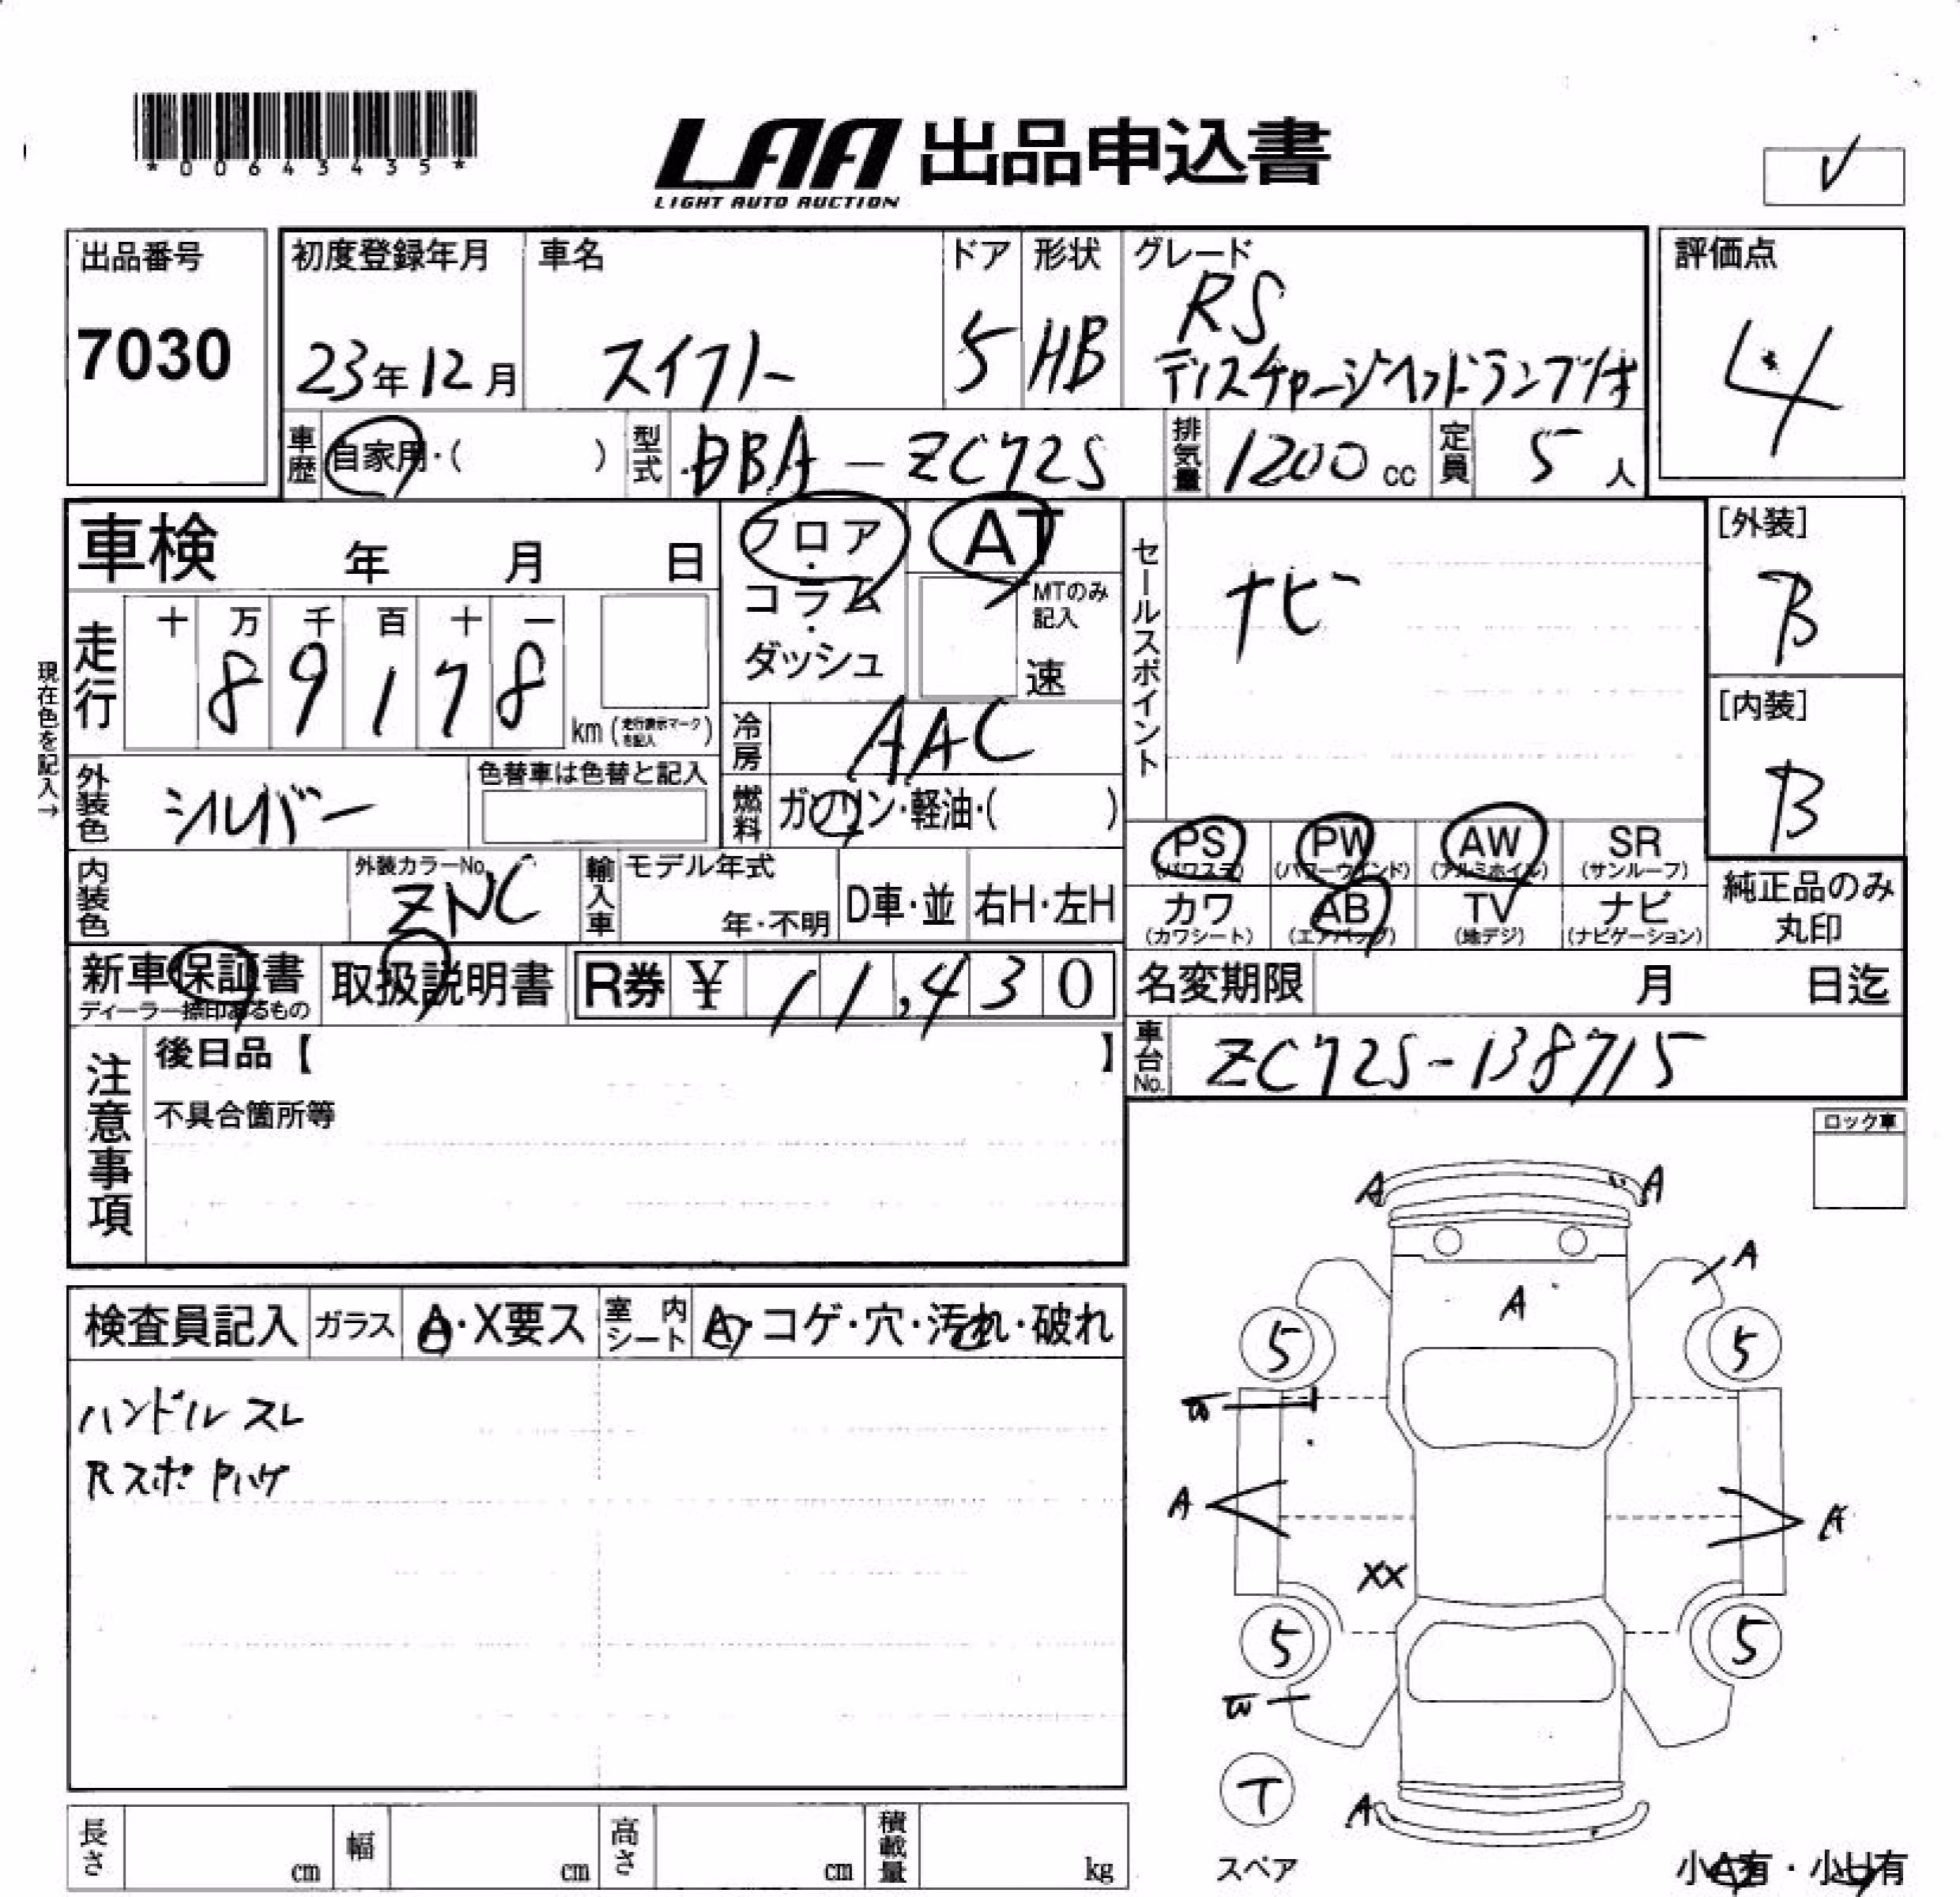 *00643435*
LAA 出品申込書
LIGHT AUTO AUCTION
✓
出品番号
7030
初度登録年月
23年12月
車名
スイフト
ドア
5
形状
HB
グレード
RS
ディスチャージヘッドランプ付
評価点
4
車歴
自家用・( )
型式
DBA-ZC72S
排気量
1200 cc
定員
5 人
車検 年 月 日
フロア・コラム・ダッシュ
AT
MTのみ記入
速
セールスポイント
ナビ
[外装]
B
[内装]
B
現在色を記入→
走行
十 万 千 百 十 一
8 9 1 7 8
km (走行表示マークを記入)
冷房
AAC
外装色
シルバー
色替車は色替と記入
燃料
ガソリン・軽油・( )
PS (パワステ)
PW (パワーウインド)
AW (アルミホイル)
SR (サンルーフ)
カワ (カワシート)
AB (エアバッグ)
TV (地デジ)
ナビ (ナビゲーション)
純正品のみ丸印
内装色
外装カラーNo.
ZNC
輸入車
モデル年式
年・不明
D車・並
右H・左H
新車保証書
ディーラー捺印あるもの
取扱説明書
R券 ¥ 11,430
名変期限 月 日迄
車台No.
ZC72S-138715
注意事項
後日品【 】
不具合箇所等
ロック車
検査員記入
ガラス
A・X要ス
室内シート
A・コゲ・穴・汚れ・破れ
ハンドルスレ
Rスポ Pハゲ
A
A
A
A
5
5
A
A
XX
5
5
T
A
スペア
小A有・小U有
長さ cm
幅 cm
高さ cm
積載量 kg